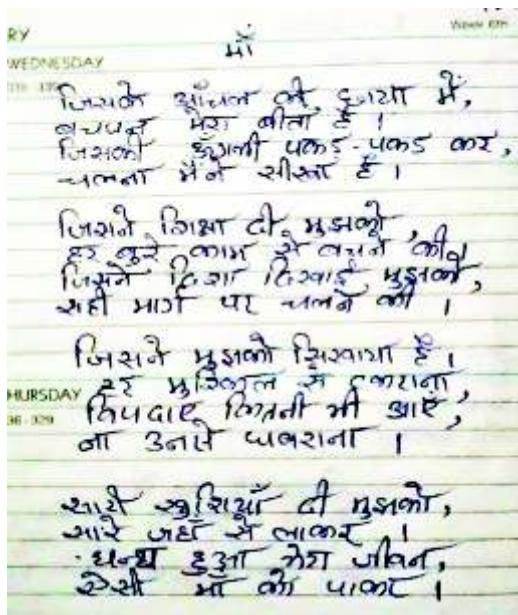 RY
Week 6th
माँ
WEDNESDAY
जिसके आँचल की छाया में,
बचपन मेरा बीता है ।
जिसकी उँगली पकड़-पकड़ कर,
चलना मैंने सीखा है ।
जिसने शिक्षा दी मुझको,
हर बुरे काम से बचने की ।
जिसने दिशा दिखाई मुझको,
सही मार्ग पर चलने की ।
जिसने मुझको सिखाया है ।
हर मुश्किल से टकराना,
HURSDAY
विपदाएँ कितनी भी आएँ,
36-329
ना उनसे घबराना ।
सारी खुशियाँ दी मुझको,
सारे जहाँ से लाकर ।
धन्य हुआ मेरा जीवन,
ऐसी माँ को पाकर ।